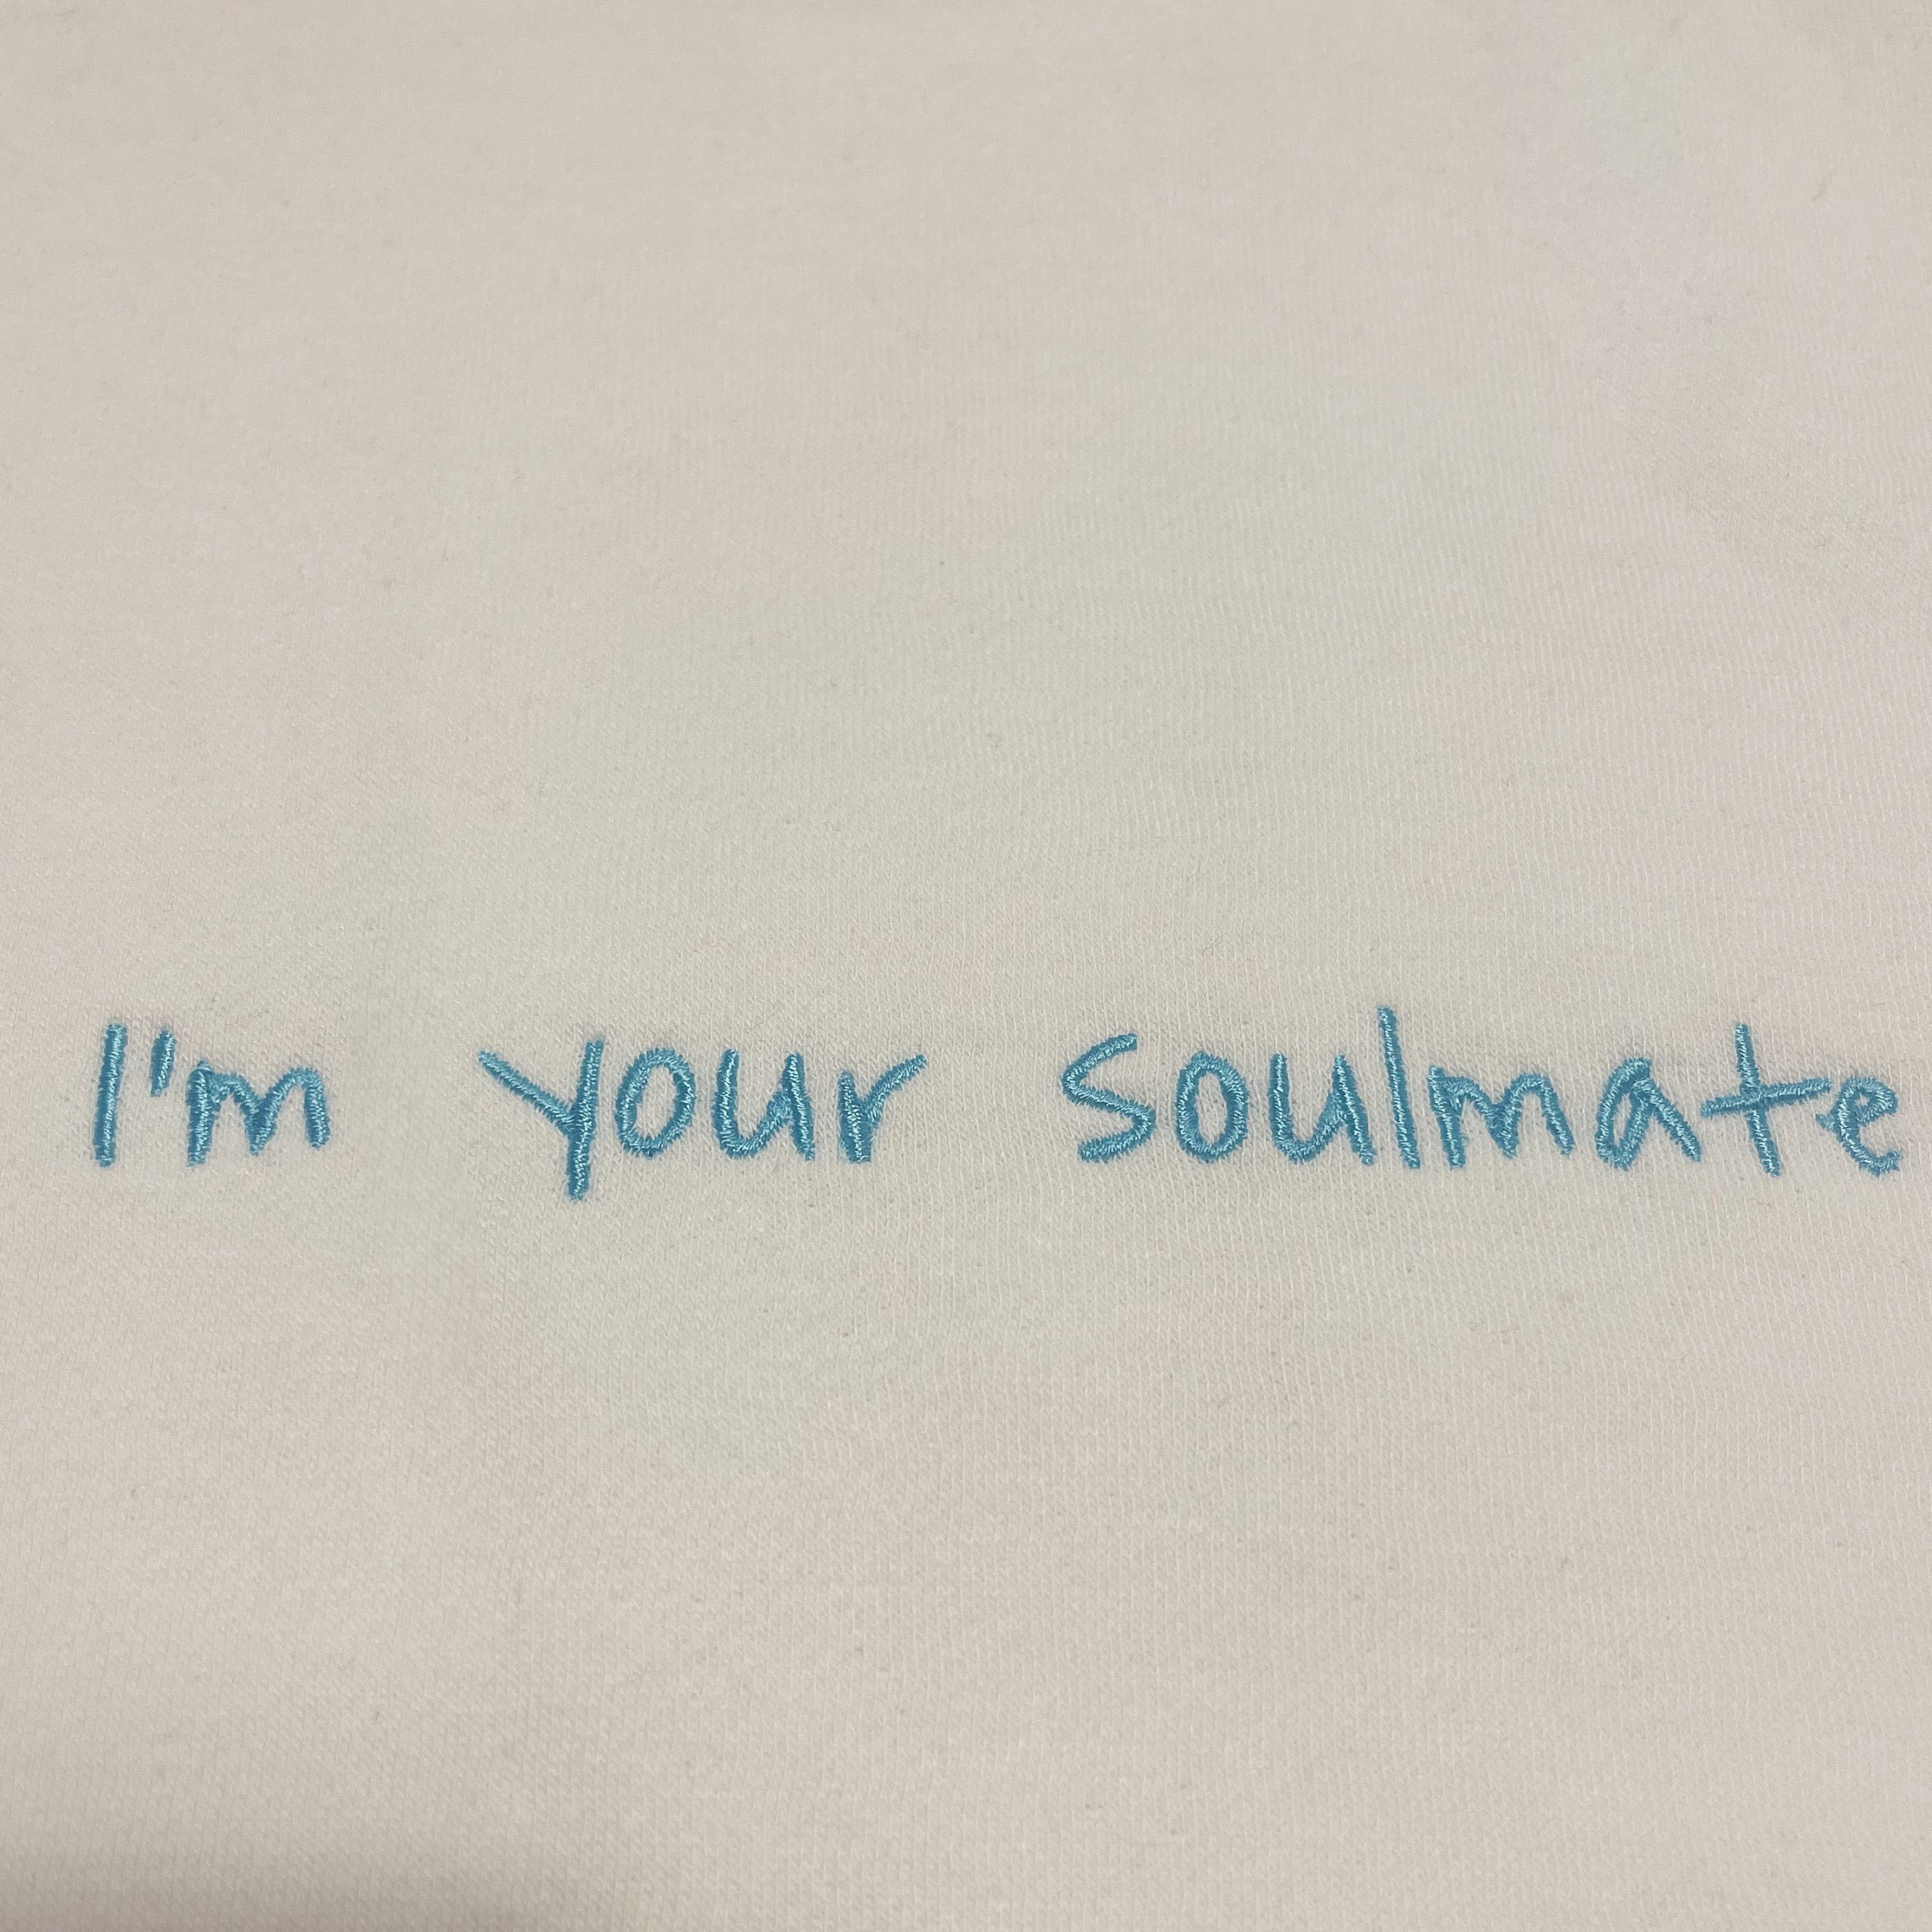 I'm your soulmate